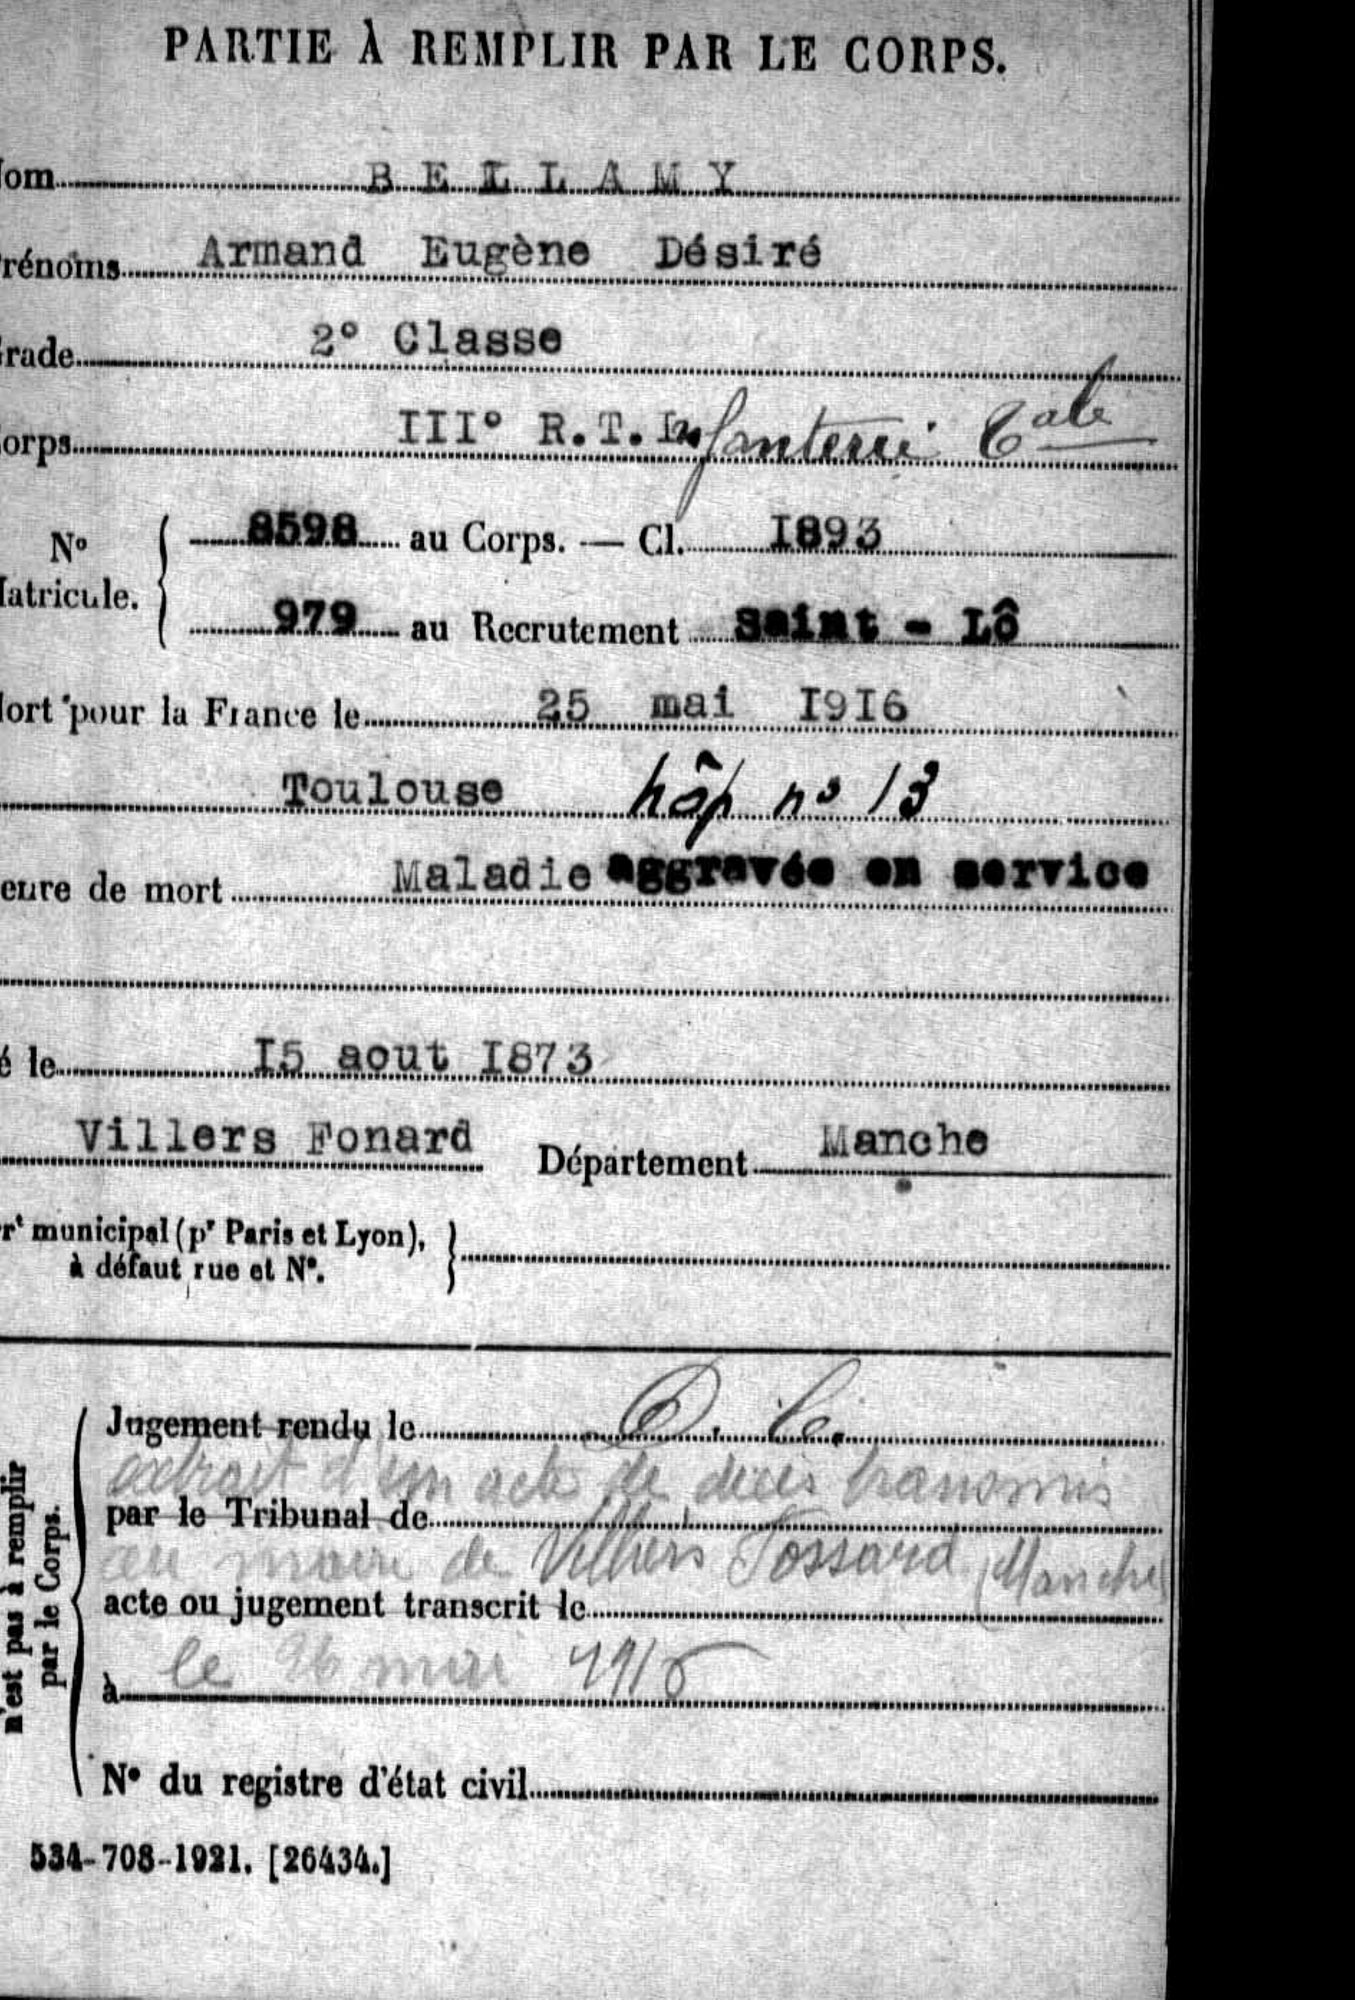 PARTIE À REMPLIR PAR LE CORPS.
om BELLAMY
rénoms Armand Eugène Désiré
rade 2° Classe
orps III° R.T.Infanterie Cale
N° 8598 au Corps. — Cl. 1893
atricule.
979 au Recrutement Saint - Lô
ort pour la France le 25 mai 1916
Toulouse hôp n° 13
enre de mort Maladie aggravée en service
é le 15 aout 1873
Villers Fonard Département Manche
rt municipal (pr Paris et Lyon),
à défaut rue et N°.
Jugement rendu le
extrait d'un acte de décès transmis
par le Tribunal de
au maire de Villiers Fossard (Manche)
acte ou jugement transcrit le
le 26 mai 1916
à
N° du registre d'état civil
n'est pas à remplir
par le Corps.
534-708-1921. [26434.]